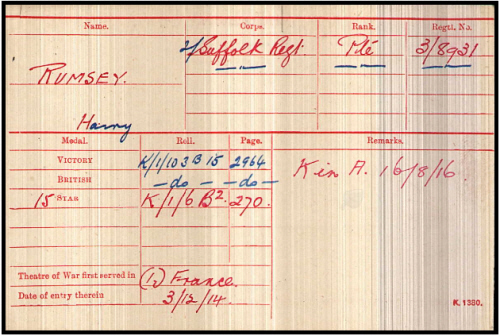 Name. Corps. Rank. Regtl. No.
2/Suffolk Regt. Pte 3/8931
RUMSEY.
Harry
Medal. Roll. Page. Remarks.
VICTORY K/1/103 B 15 2964
BRITISH — do — — do —
15 STAR K/1/6 B2. 270.
K in A. 16/8/16.
Theatre of War first served in (1) France.
Date of entry therein 3/12/14.
K. 1380.